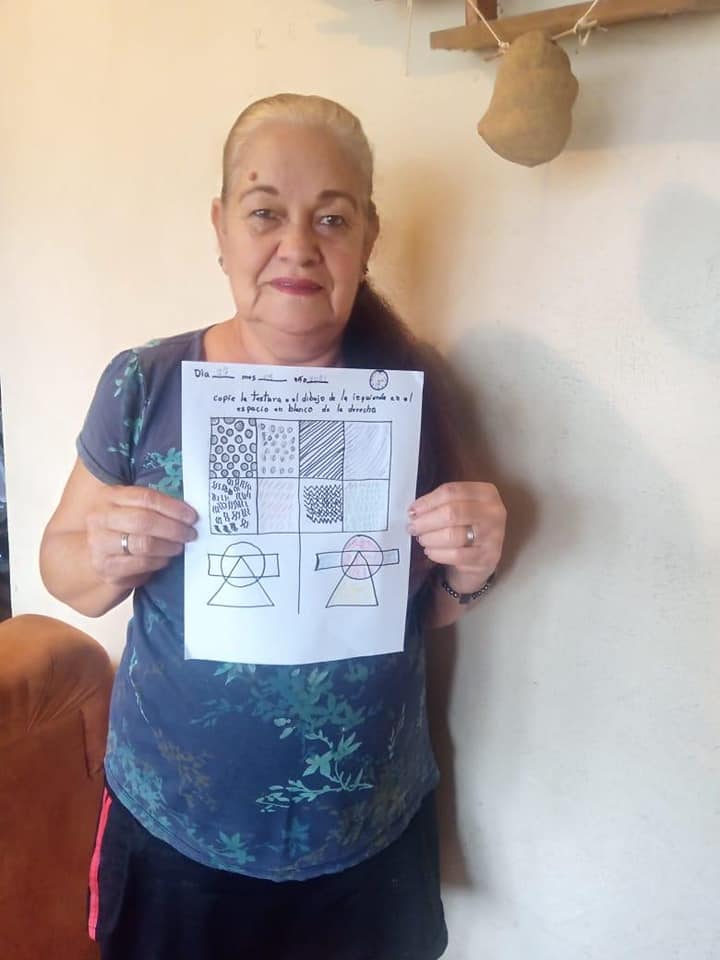 Dia 27 mes año
copie la textura o el dibujo de la izquierda en el
espacio en blanco de la derecha